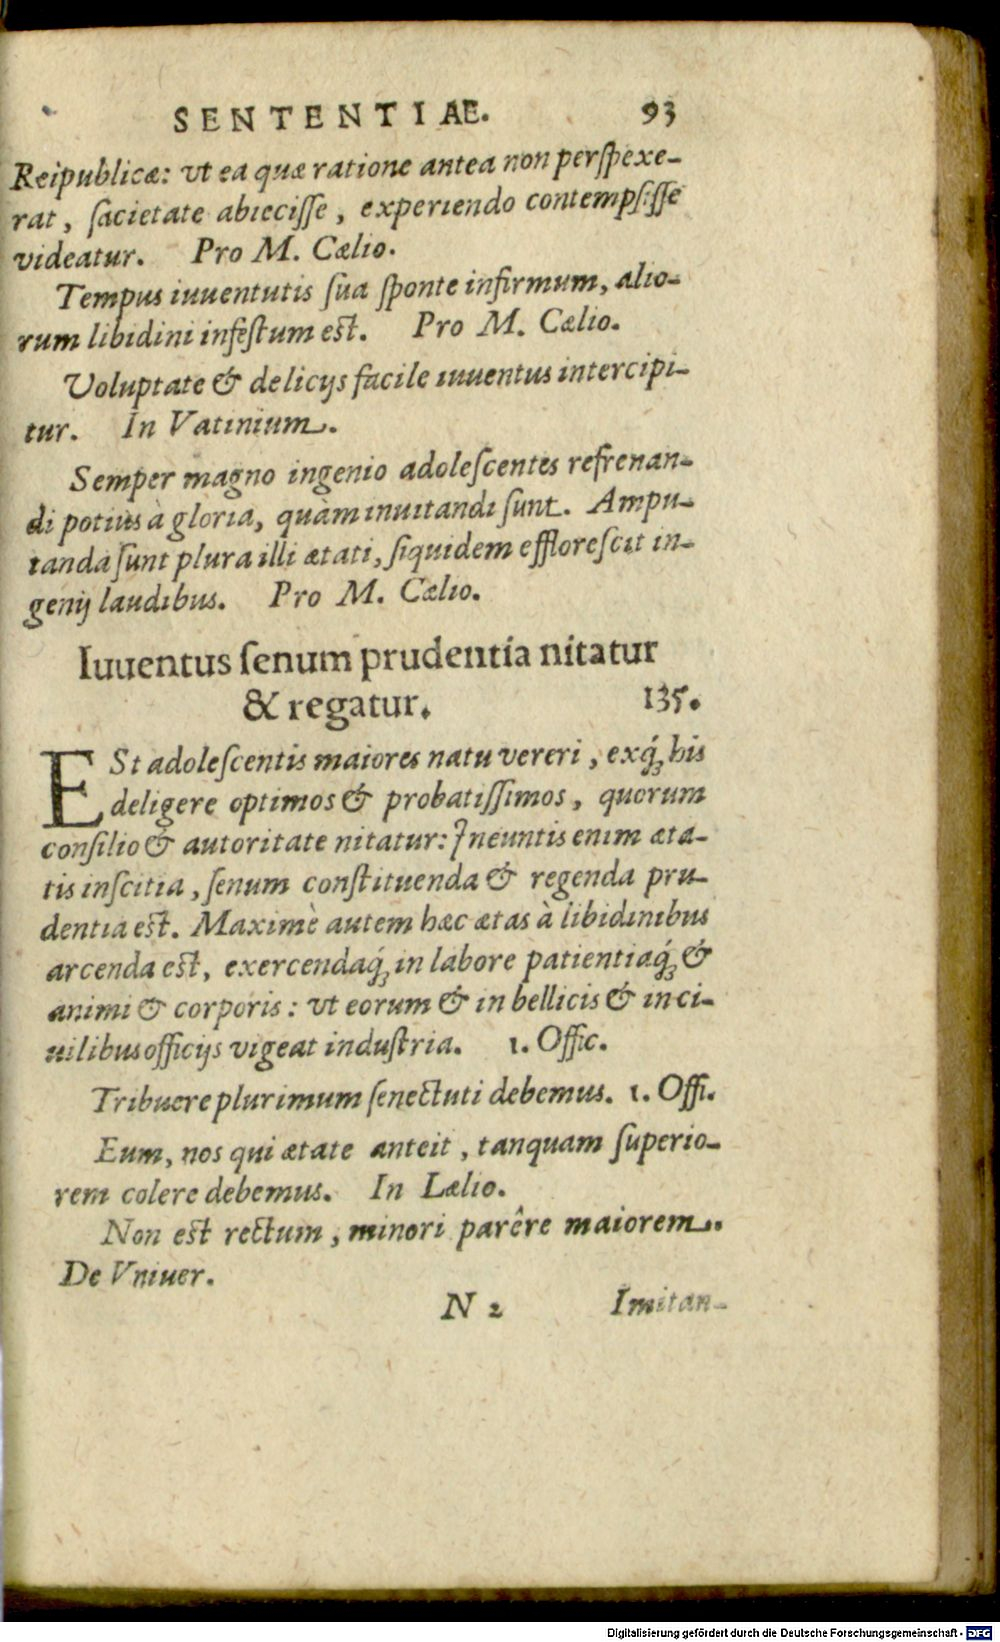 SENTENTIAE. 93
Reipublicæ: vt ea quæ ratione antea non perspexe-
rat, ſacietate abieciſſe, experiendo contempſiſſe
videatur. Pro M. Cælio.
Tempus iuuentutis ſua ſponte infirmum, alio-
rum libidini infeſtum eſt. Pro M. Cælio.
Voluptate & delicijs facile iuuentus intercipi-
tur. In Vatinium.
Semper magno ingenio adoleſcentes refrenan-
di potius à gloria, quàm inuitandi ſunt. Ampu-
tanda ſunt plura illi ætati, ſiquidem effloreſcit in-
genij laudibus. Pro M. Cælio.
Iuuentus ſenum prudentia nitatur
& regatur. 135.
ESt adoleſcentis maiores natu vereri, exq́; his
deligere optimos & probatiſſimos, quorum
conſilio & autoritate nitatur: Ineuntis enim æta-
tis inſcitia, ſenum conſtituenda & regenda pru-
dentia eſt. Maximè autem hæc ætas à libidinibus
arcenda eſt, exercendaq́; in labore patientiaq́; &
animi & corporis: vt eorum & in bellicis & in ci-
uilibus officijs vigeat induſtria. 1. Offic.
Tribuere plurimum ſenectuti debemus. 1. Offi.
Eum, nos qui ætate anteit, tanquam ſuperio-
rem colere debemus. In Lælio.
Non eſt rectum, minori parêre maiorem..
De Vniuer.
N 2 Imitan-
Digitalisierung gefördert durch die Deutsche Forschungsgemeinschaft - DFG